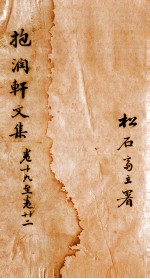 松石斋主署
抱润軒文集
卷十九至卷廿二